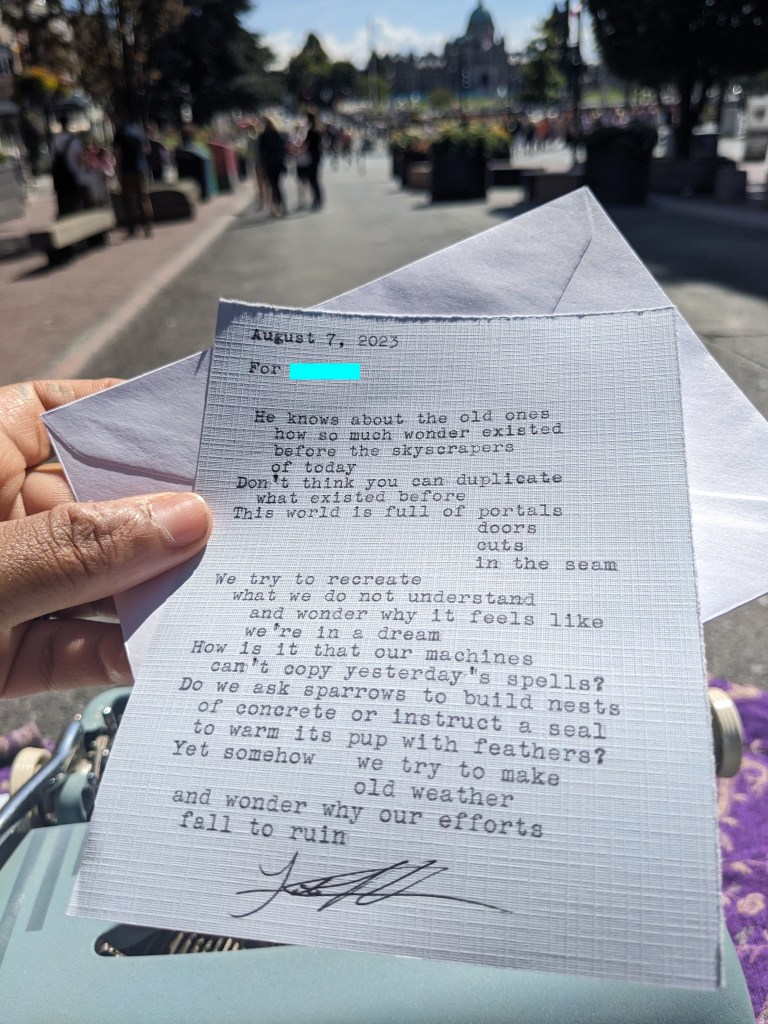 August 7, 2023
For
He knows about the old ones
how so much wonder existed
before the skyscrapers
of today
Don't think you can duplicate
what existed before
This world is full of portals
doors
cuts
in the seam
We try to recreate
what we do not understand
and wonder why it feels like
we're in a dream
How is it that our machines
can't copy yesterday's spells?
Do we ask sparrows to build nests
of concrete or instruct a seal
to warm its pup with feathers?
Yet somehow we try to make
old weather
and wonder why our efforts
fall to ruin